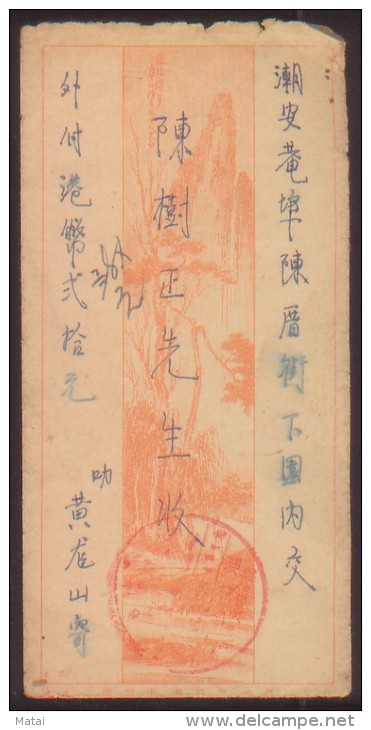 潮安菴埠陳厝街下園內交
陳樹正先生收
外付港幣弍拾元
叻 黃龙山寄
Matai
delcampe.net